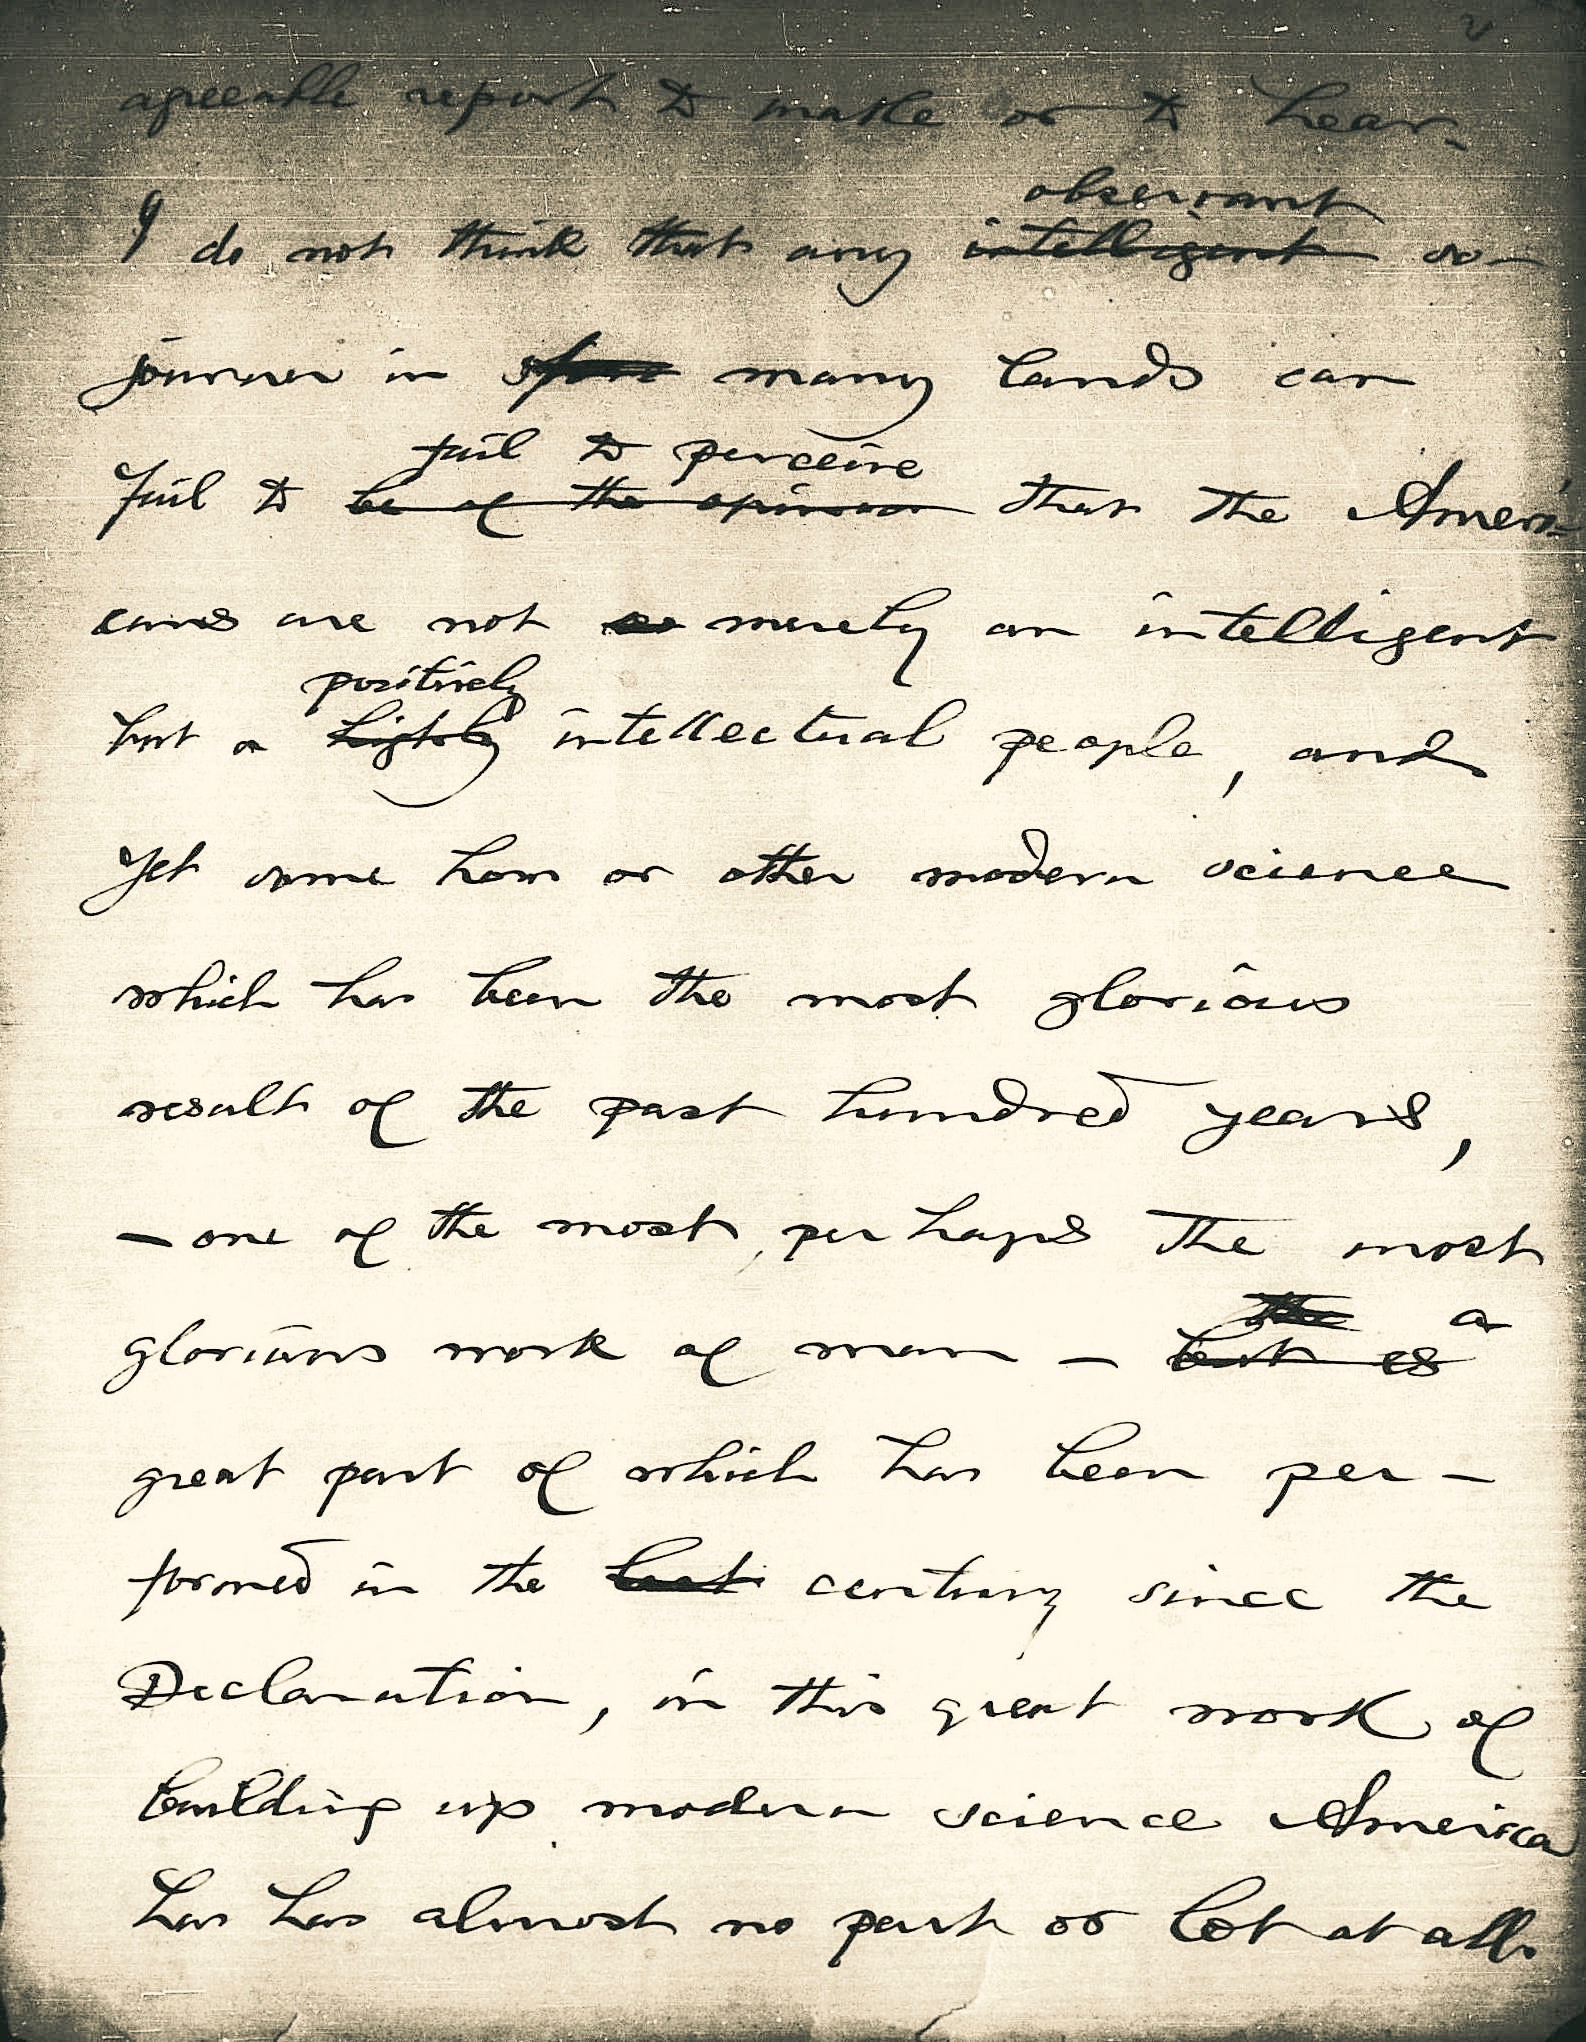 2
agreeable report to make or to hear.
observant
I do not think that any intelligent so-
journer in many lands can
fail to perceive
fail to be of the opinion that the Ameri-
cans are not so merely an intelligent
positively
but a highly intellectual people, and
yet some how or other modern science
which has been the most glorious
result of the past hundred years,
— one of the most, perhaps the most
the a
glorious work of man — but is
great part of which has been per-
formed in the last century since the
Declaration, in this great work of
building up modern science America
has has almost no part or lot at all.